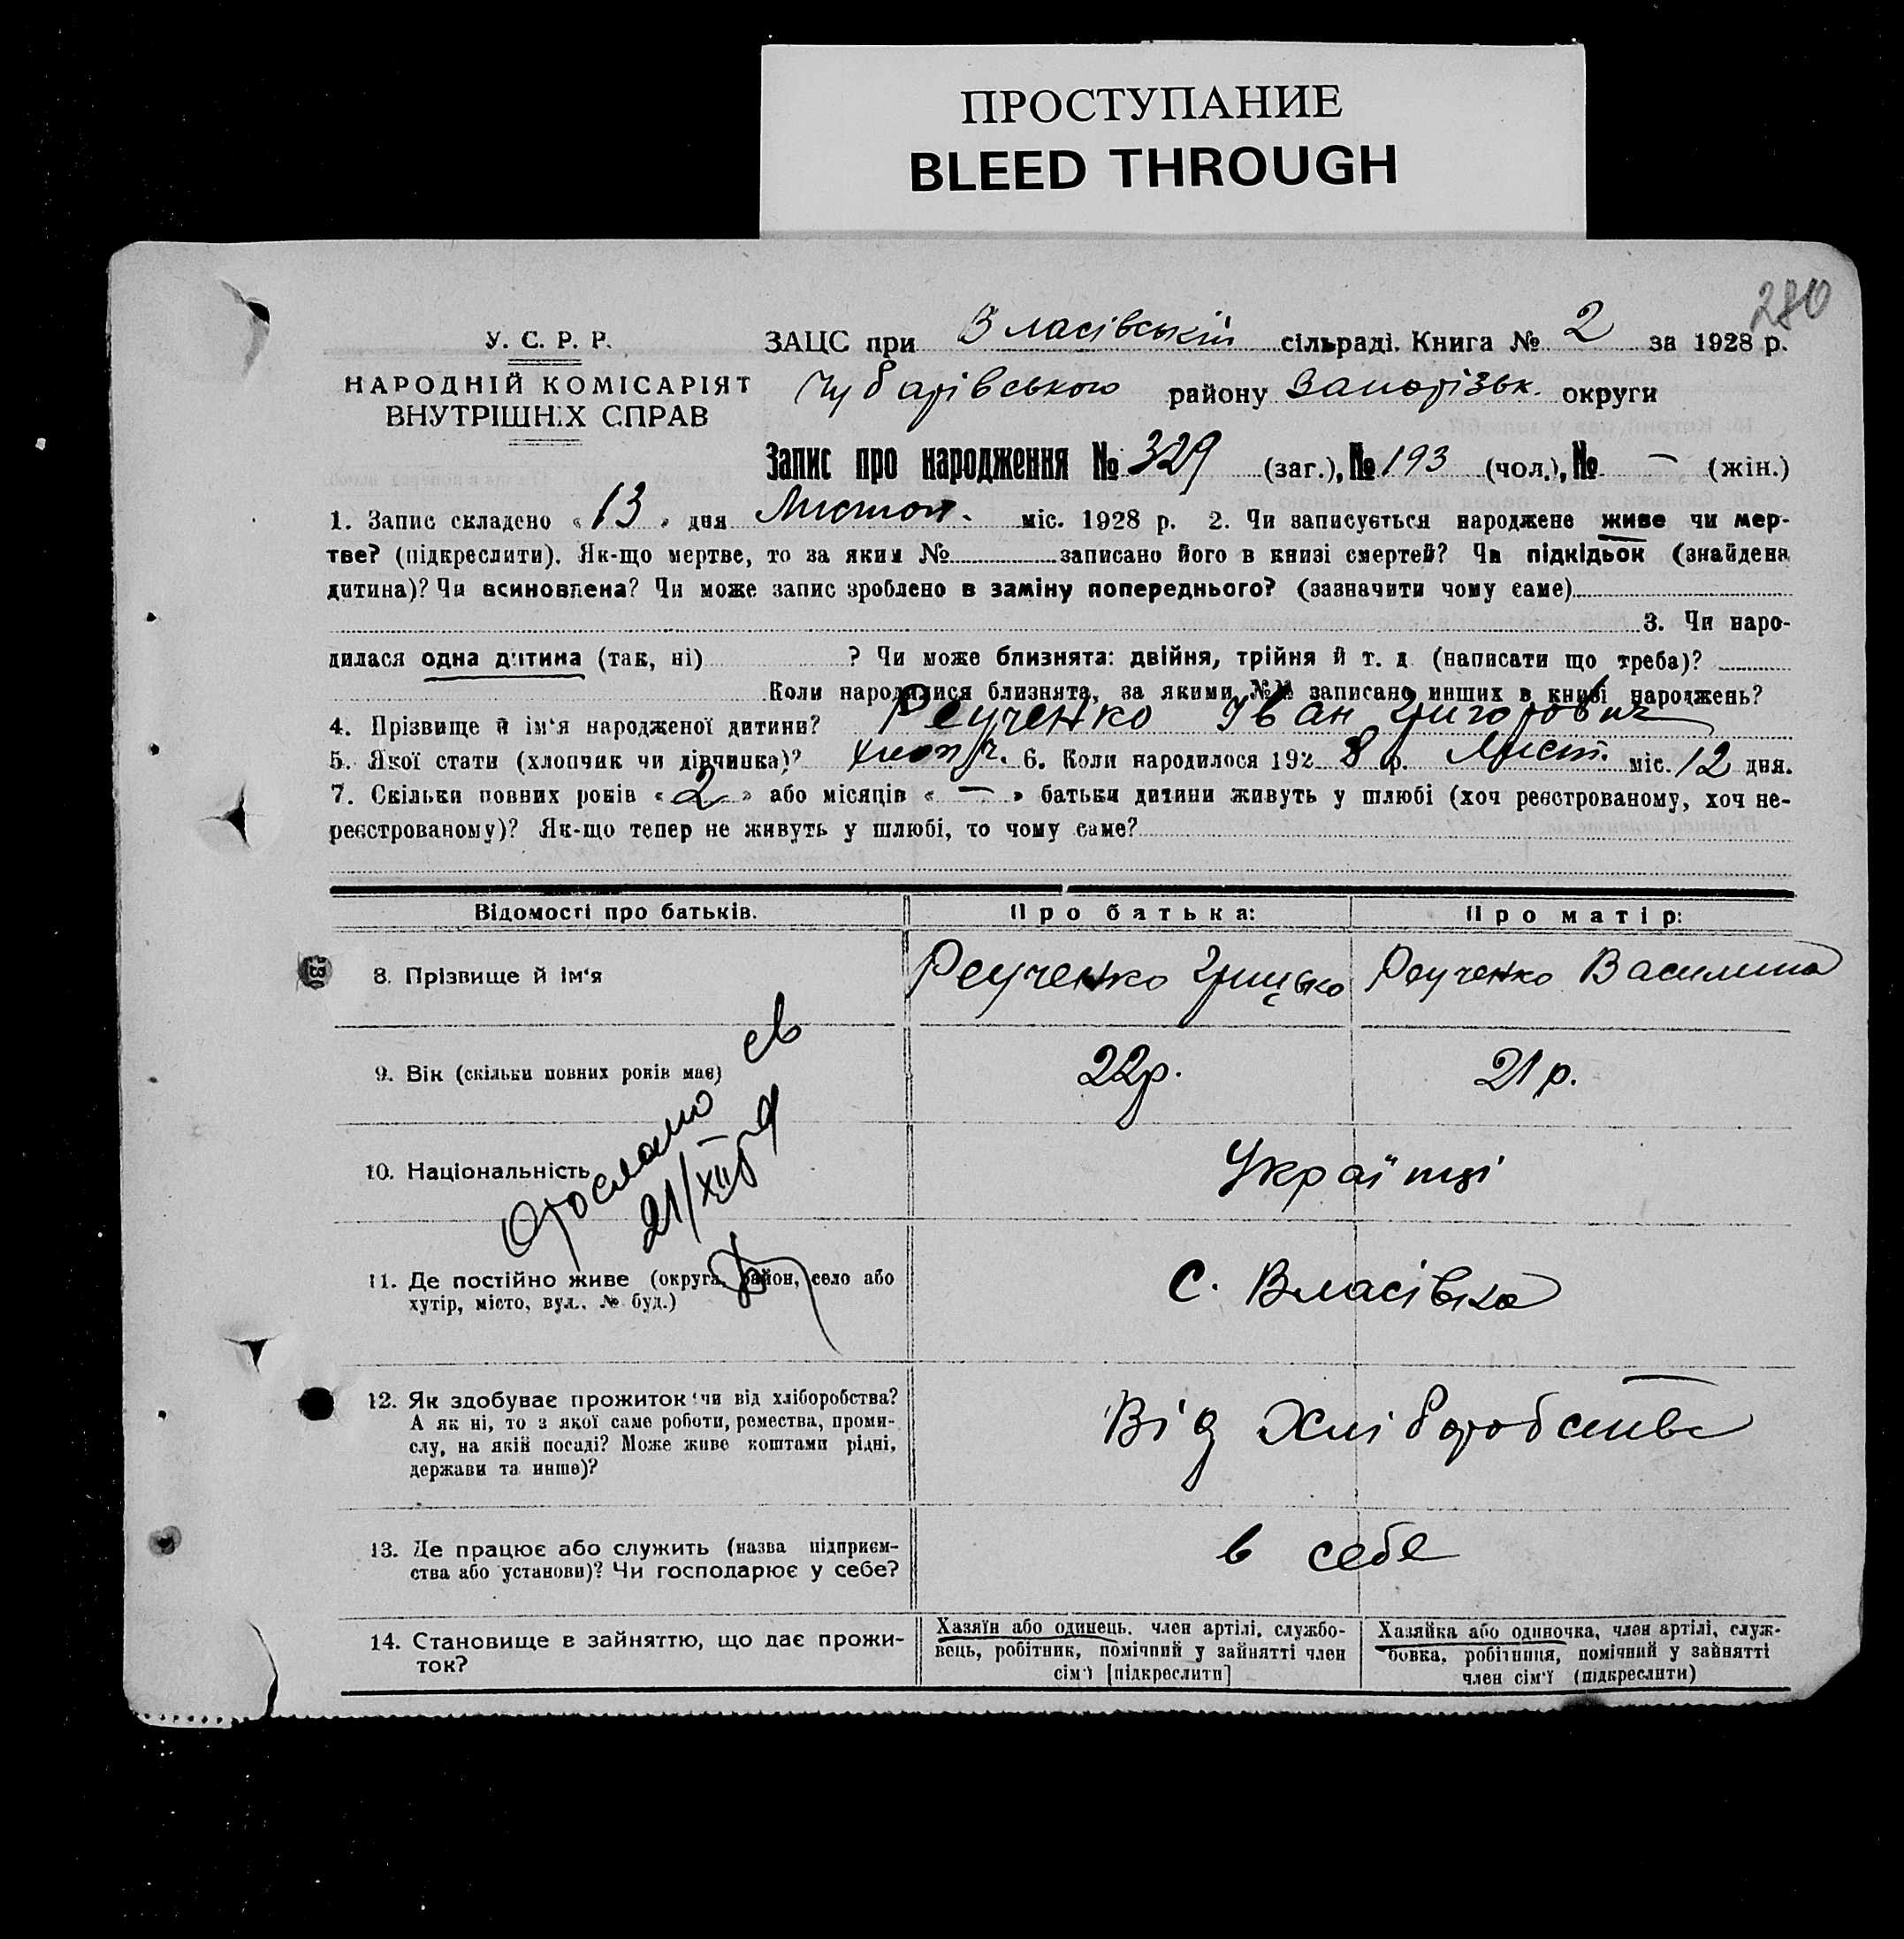 ПРОСТУПАНИЕ
BLEED THROUGH
280
У. С. Р. Р.
НАРОДНІЙ КОМІСАРІЯТ
ВНУТРІШНІХ СПРАВ
ЗАЦС при Власівській сільраді. Книга № 2 за 1928 р.
Чубарівського району Запорізьк. округи
Запис про народження № 329 (заг.), № 193 (чол.), № — (жін.)
1. Запис складено « 13 » дня Листоп. міс. 1928 р. 2. Чи записується народжене живе чи мер-
тве? (підкреслити). Як-що мертве, то за яким № записано його в книзі смертей? Чи підкідьок (знайдена
дитина)? Чи всиновлена? Чи може запис зроблено в заміну попереднього? (зазначити чому саме)
3. Чи наро-
дилася одна дитина (так, ні) ? Чи може близнята: двійня, трійня й т. д. (написати що треба)?
Коли народилися близнята, за якими №№ записано инших в книзі народжень?
4. Прізвище й ім'я народженої дитини? Реученко Іван Григорович
5. Якої стати (хлопчик чи дівчинка)? хлопч. 6. Коли народилося 192 8 р. Лист. міс. 12 дня.
7. Скільки повних років « 2 » або місяців « — » батьки дитини живуть у шлюбі (хоч реєстрованому, хоч не-
реєстрованому)? Як-що тепер не живуть у шлюбі, то чому саме?
Відомості про батьків. Про батька: Про матір:
8. Прізвище й ім'я Реученко Грицько Реученко Василина
9. Вік (скільки повних років має) 22р. 21 р.
10. Національність Українці
21/XII
11. Де постійно живе (округа, район, село або
хутір, місто, вул., № буд.) с. Власівка
12. Як здобуває прожиток (чи від хліборобства?
А як ні, то з якої саме роботи, ремества, проми-
слу, на якій посаді? Може живе коштами рідні,
держави та инше)? Від Хліборобства
13. Де працює або служить (назва підприєм-
ства або установи)? Чи господарює у себе? в себе
14. Становище в зайняттю, що дає прожи-
ток?
Хазяїн або одинець, член артілі, службо-
вець, робітник, помічний у зайнятті член
сім'ї [підкреслити]
Хазяйка або одиночка, член артілі, служ-
бовка, робітниця, помічний у зайнятті
член сім'ї (підкреслити)